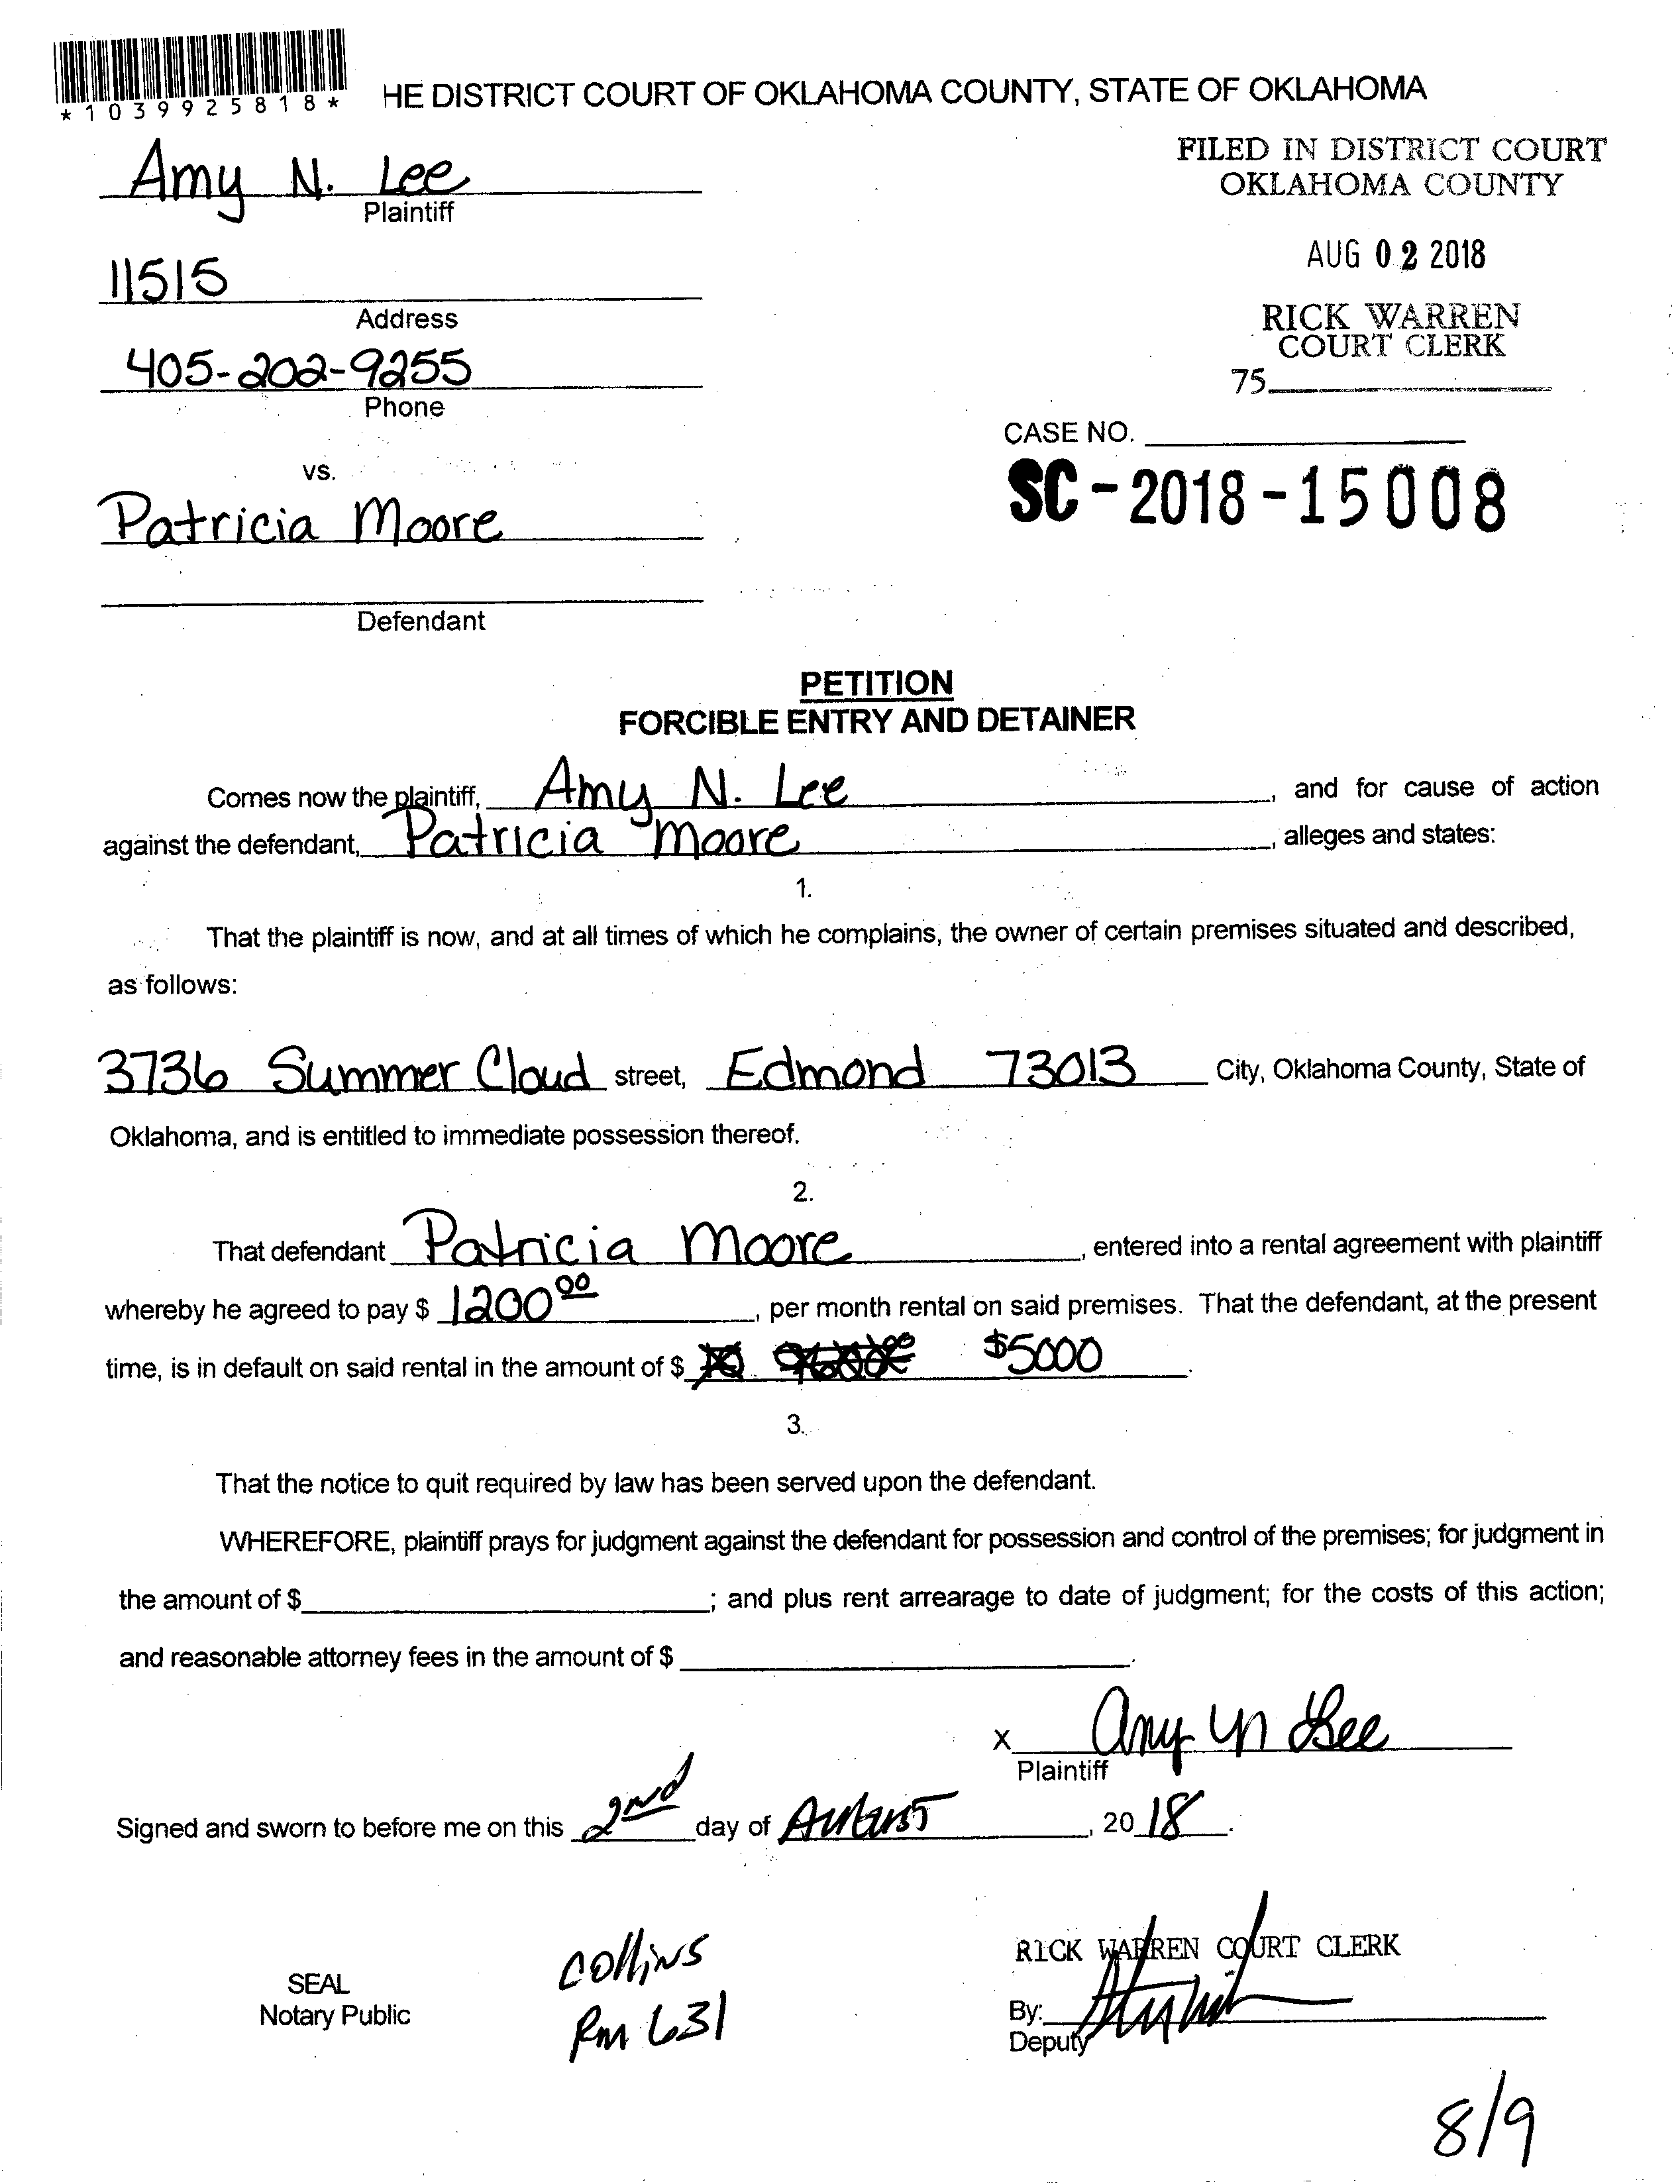 *1039925818*
HE DISTRICT COURT OF OKLAHOMA COUNTY, STATE OF OKLAHOMA
FILED IN DISTRICT COURT
OKLAHOMA COUNTY
Amy N. Lee
Plaintiff
AUG 02 2018
11515
Address
RICK WARREN
COURT CLERK
405-202-9255
Phone
75
CASE NO.
vs.
SC-2018-15008
Patricia Moore
Defendant
PETITION
FORCIBLE ENTRY AND DETAINER
Comes now the plaintiff, Amy N. Lee, and for cause of action
against the defendant, Patricia Moore, alleges and states:
1.
That the plaintiff is now, and at all times of which he complains, the owner of certain premises situated and described,
as follows:
3736 Summer Cloud street, Edmond 73013 City, Oklahoma County, State of
Oklahoma, and is entitled to immediate possession thereof.
2.
That defendant Patricia Moore, entered into a rental agreement with plaintiff
whereby he agreed to pay $ 1200 00, per month rental on said premises. That the defendant, at the present
time, is in default on said rental in the amount of $ $5000.
3.
That the notice to quit required by law has been served upon the defendant.
WHEREFORE, plaintiff prays for judgment against the defendant for possession and control of the premises; for judgment in
the amount of $; and plus rent arrearage to date of judgment; for the costs of this action;
and reasonable attorney fees in the amount of $.
X Amy N Lee
Plaintiff
Signed and sworn to before me on this 2nd day of August, 2018.
SEAL
Notary Public
Collins
Rm 631
RICK WARREN COURT CLERK
By:
Deputy
8/9